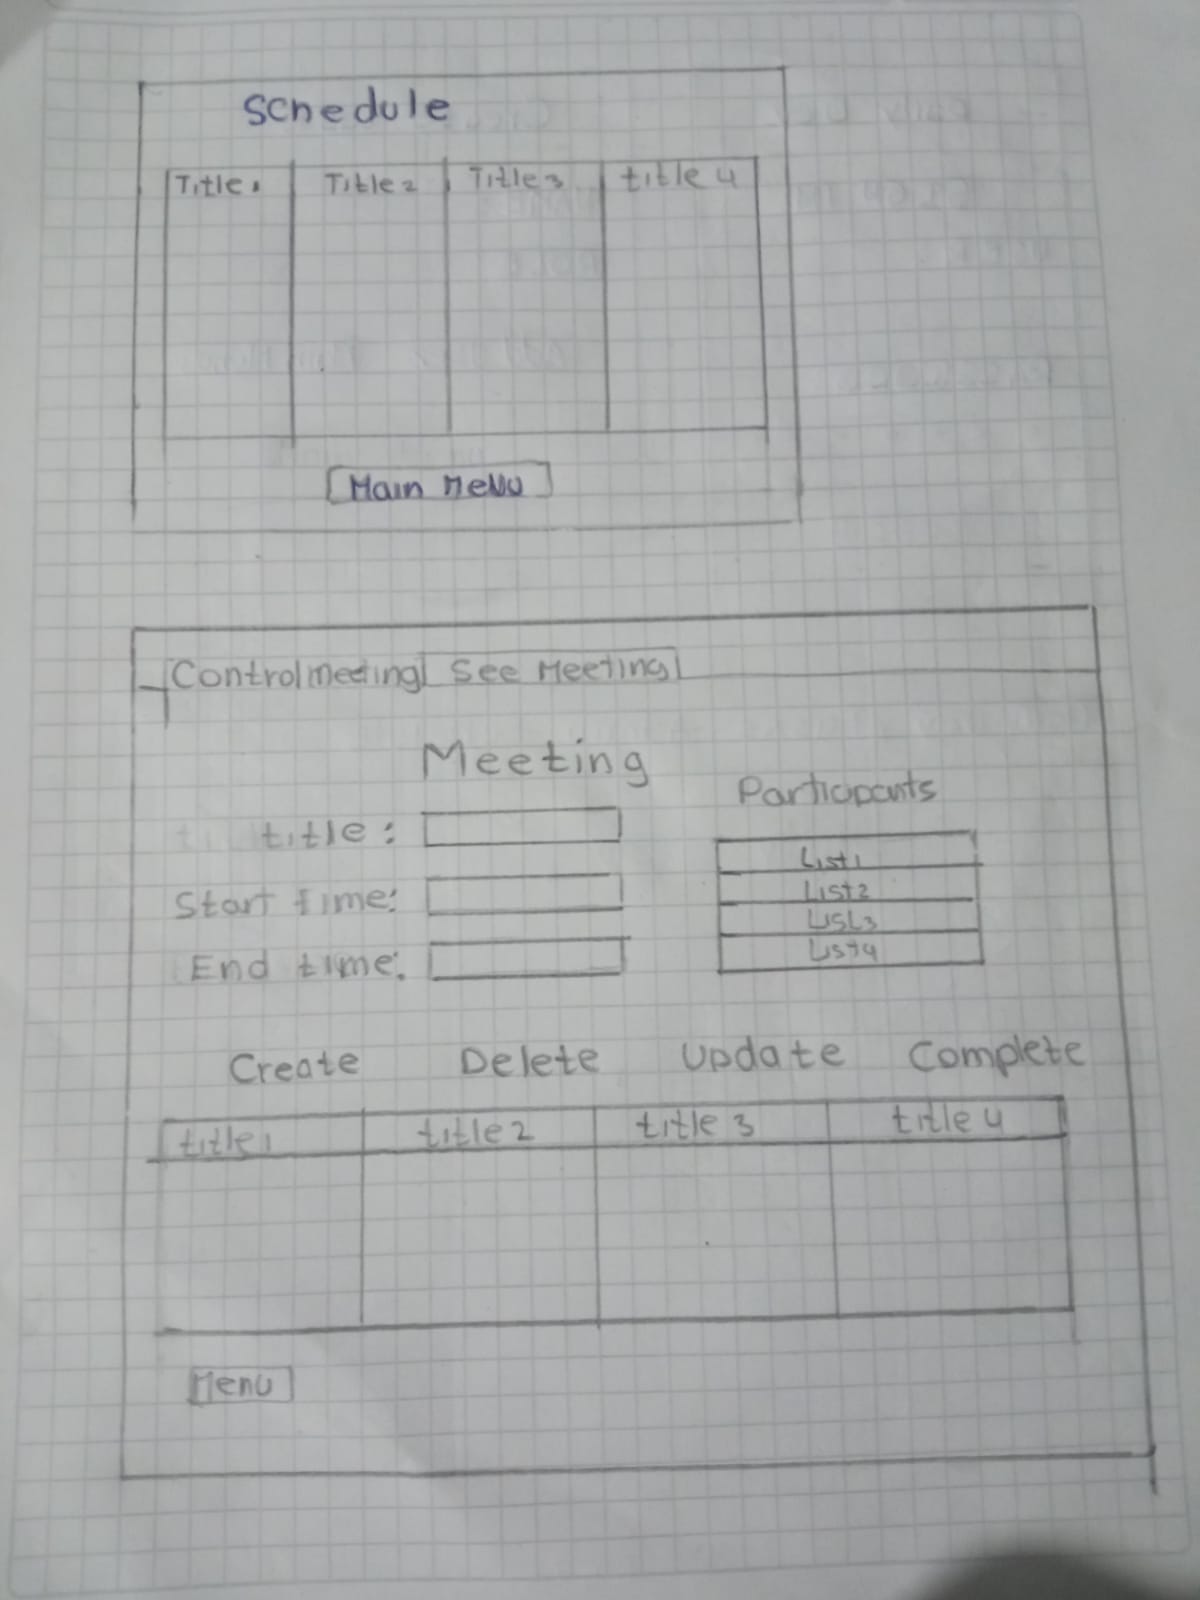 Schedule
Title1 Title2 Title3 title 4
Main Menu
Control meeting See Meeting
Meeting
Participants
title:
List1
Start time:
List2
List3
End time:
List4
Create Delete Update Complete
title1 title2 title 3 title 4
Menu